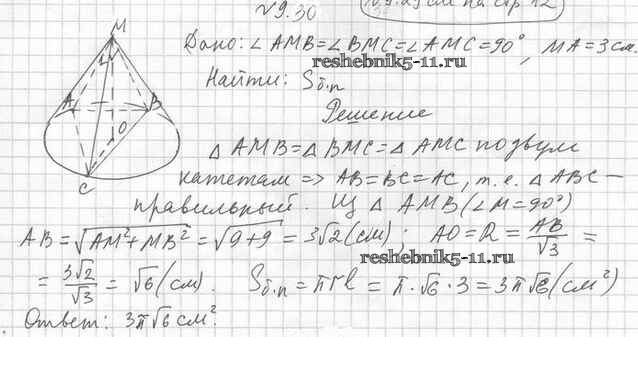 №9.30
№9.29 см на стр 12
Дано: ∠AMB=∠BMC=∠AMC=90°, MA=3см.
reshebnik5-11.ru
Найти: Sб.п
Решение
M
A
B
O
C
△AMB=△BMC=△AMC по двум
катетам => AB=BC=AC, т.е. △ABC –
правильный. Из △AMB(∠M=90°)
AB=√AM²+MB² = √9+9 = 3√2(см); AO=R=AB/√3 =
reshebnik5-11.ru
= 3√2/√3 = √6(см). Sб.п = πrl = π·√6·3 = 3π√6(см²)
Ответ: 3π√6 см².